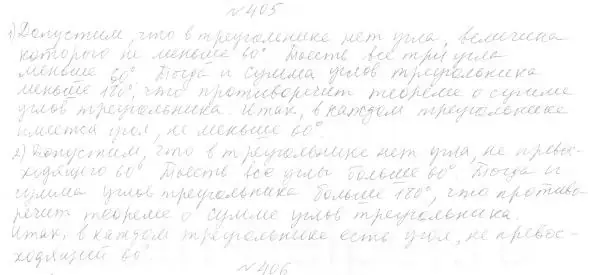 №405
1) Допустим, что в треугольнике нет угла, величина
которого не меньше 60° Тоесть все три угла
меньше 60° Тогда и сумма углов треугольника
меньше 180°, что противоречит теореме о сумме
углов треугольника. Итак, в каждом треугольнике
имеется угол, не меньше 60°.
2) Допустим, что в треугольнике нет угла, не превос-
ходящего 60° Тоесть все углы больше 60° Тогда и
сумма углов треугольника больше 180°, что противо
речит теореме о сумме углов треугольника.
Итак, в каждом треугольнике есть угол, не превос-
ходящий 60°.
№406